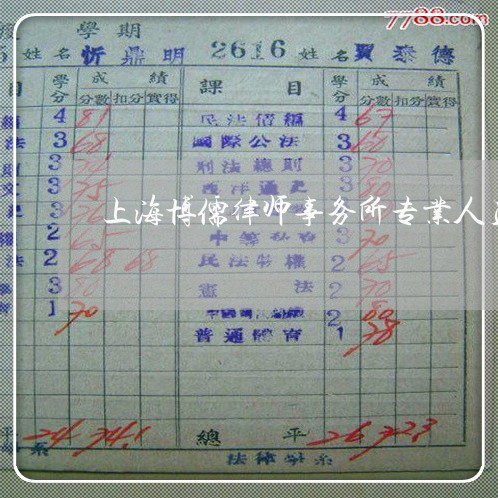 7788.com
學期
姓名 忻鼎明 2616 姓名 賈泰德
目 學分 成績 課目 學分 成績
分數 扣分 實得 分數 扣分 實得
4 81 民法債編 4 67
法 3 68 國際公法 3 60
3 刑法總則 3 70
3 75 西洋通史 3 80
上海博儒律师事务所专業人
2 65 中等 3 70
法 2 68 68 民法物權 2 65
3 80 憲法 2 70
1 70 2 80
普通體育 1 78
平 24 74.1 總平 26 72.3
系 法律學系